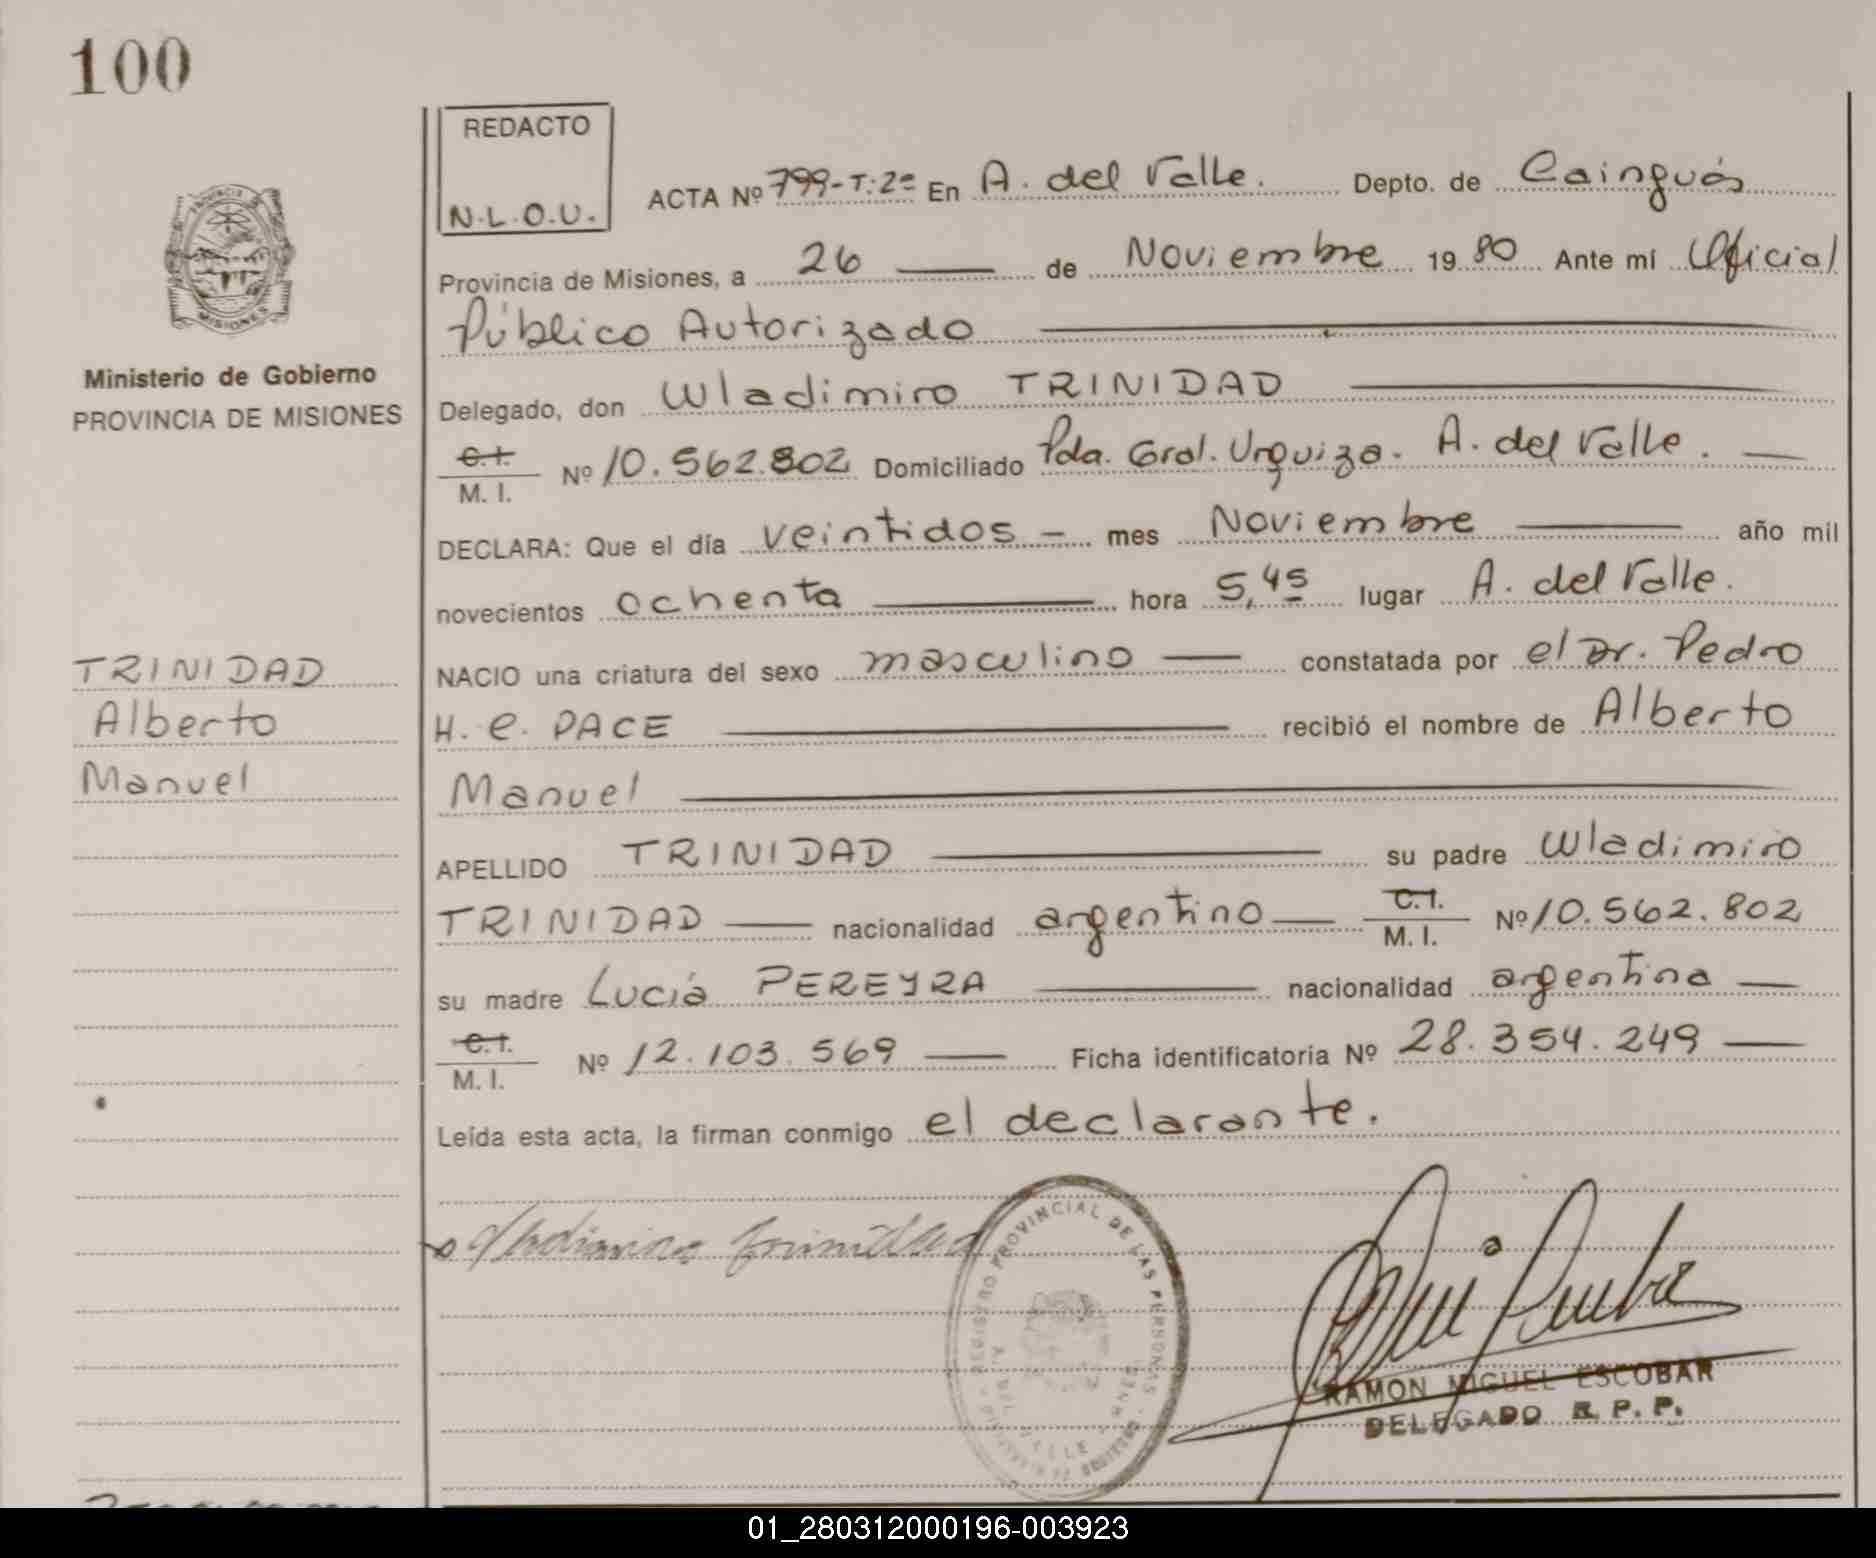 100
REDACTO
N.L.O.U.
PROVINCIA DE
MISIONES
Ministerio de Gobierno
PROVINCIA DE MISIONES
TRINIDAD
Alberto
Manuel
ACTA Nº 799-T:2º En A. del Valle. Depto. de Cainguás
Provincia de Misiones, a 26 — de Noviembre 19 80 Ante mí Oficial
Público Autorizado —
Delegado, don Wladimiro TRINIDAD —
C.I. / M. I. Nº 10.562.802 Domiciliado Pda. Gral. Urquiza. A. del Valle. —
DECLARA: Que el día veintidos — mes Noviembre — año mil
novecientos ochenta — hora 5,45 lugar A. del Valle.
NACIO una criatura del sexo masculino — constatada por el Dr. Pedro
H. C. PACE — recibió el nombre de Alberto
Manuel —
APELLIDO TRINIDAD — su padre Wladimiro
TRINIDAD — nacionalidad argentino — C.I. / M. I. Nº 10.562.802
su madre Lucía PEREYRA — nacionalidad argentina —
C.I. / M. I. Nº 12.103.569 — Ficha identificatoria Nº 28.354.249 —
Leída esta acta, la firman conmigo el declarante.
Wladimiro Trinidad
REGISTRO PROVINCIAL DE LAS PERSONAS
A. DEL VALLE
RAMON MIGUEL ESCOBAR
DELEGADO R. P. P.
01_280312000196-003923